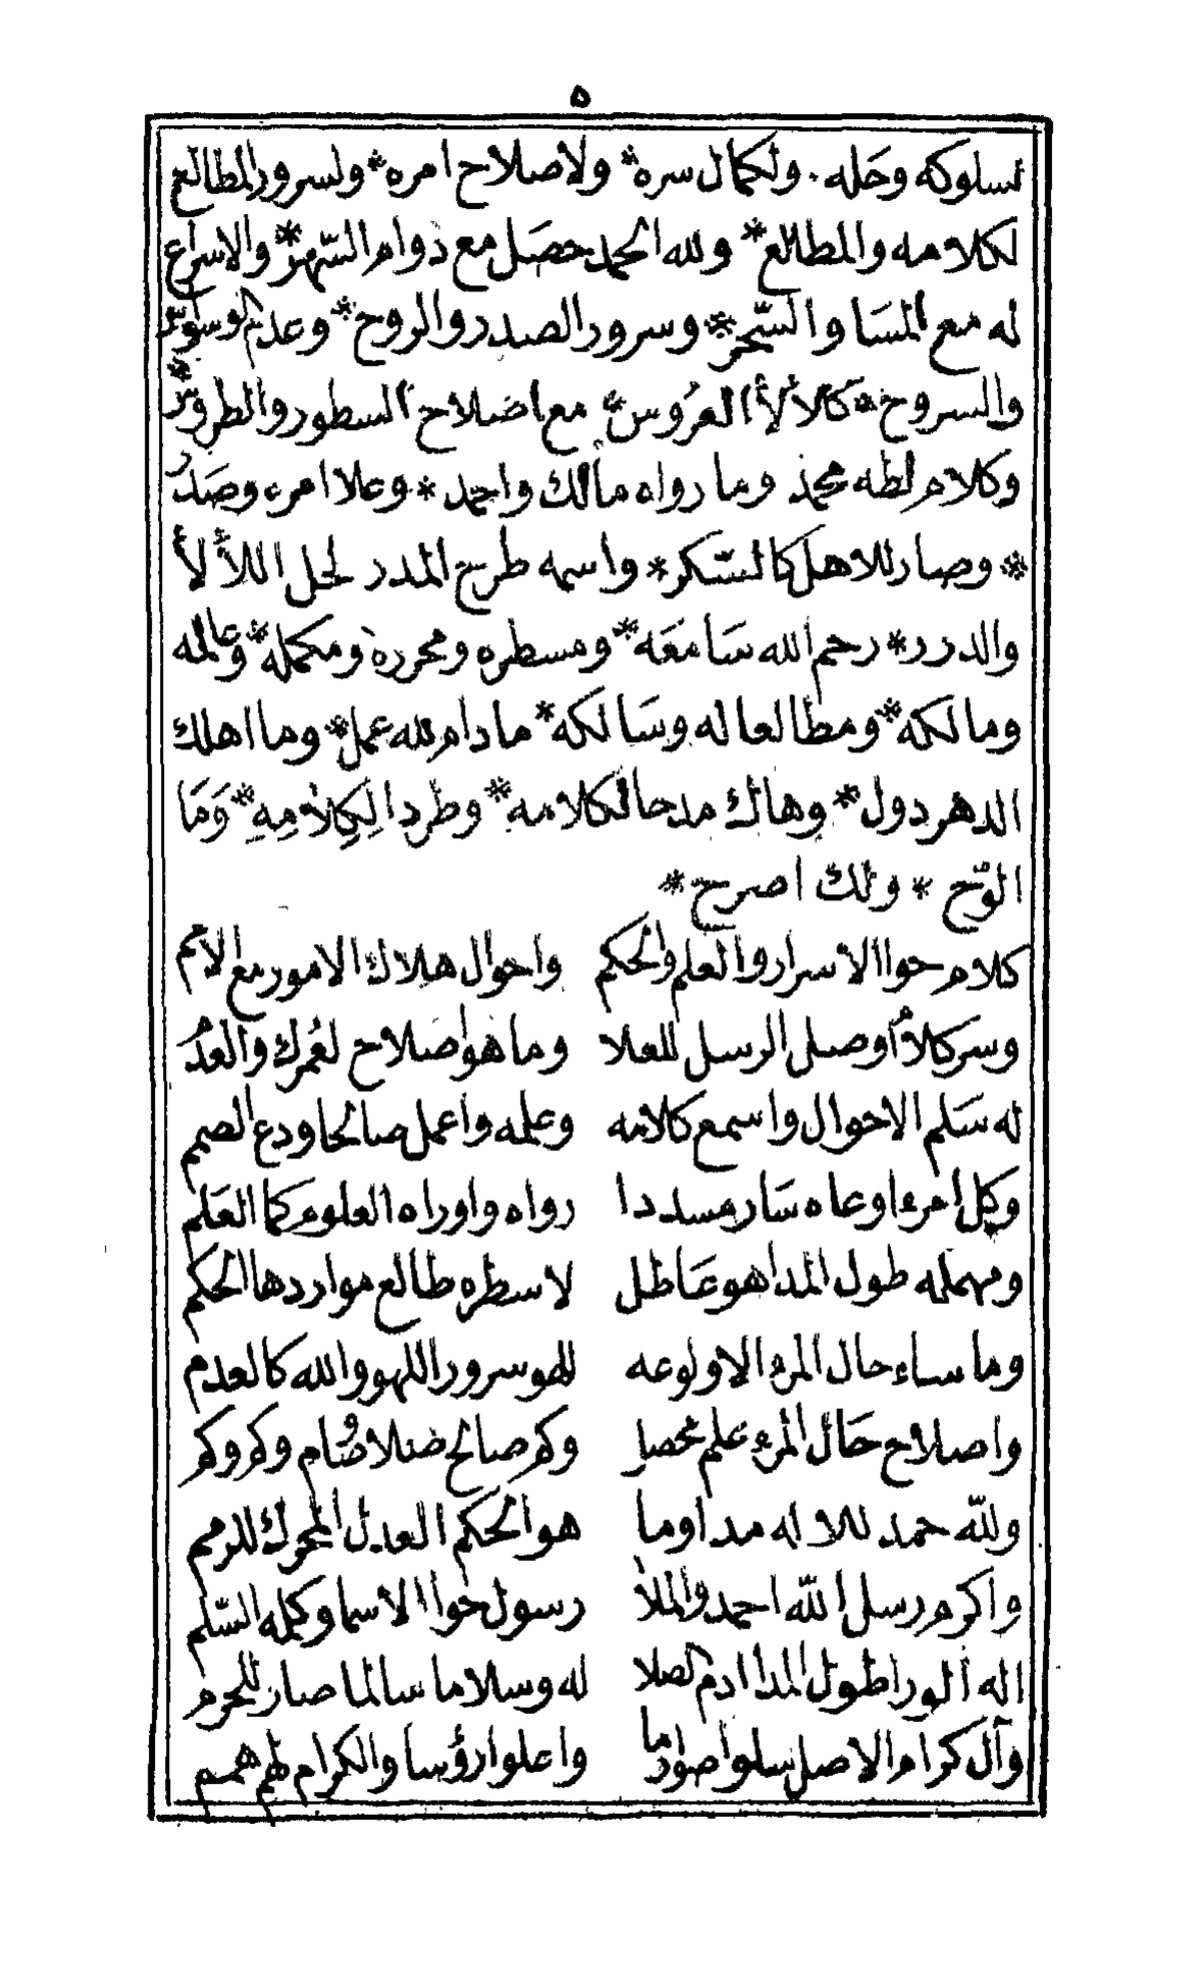 ٥
لسلوكه وحله. ولكمال سره * ولاصلاح امره * ولسرور المطالع
لكلامه والمطالع * ولله الحمد حصل مع دوام السهر * والاسراع
له مع المسا والسحر * وسرور الصدر والروح * وعدم
والسروح * كلألأ العروس * مع اصلاح السطور والطروس *
وكلام لطه محمد وما رواه مالك واحمد * وعلا امره وصدر
* وصار للاهل كالسكر * واسمه طرح المدر لحل اللألأ
والدرر * رحم الله سامعه * ومسطره ومحرره ومكمله * وعالمه
ومالكه * ومطالعا له وسالكه * ما دام لله عمل * وما اهلك
الدهر دول * وهاك مدحا لكلامه * وطردا لِكِلاَمِهِ * وَمَا
* ولك اصرح *
كلام حوا الاسرار والعلم والحكم واحوال هلاك الامور مع الامم
وسر كلام أوصل الرسل للعلا وما هو اصلاح لعمرك والعدم
له سلم الاحوال واسمع كلامه وعلمه واعمل صالحا ودع الصمم
وكل امرء اوعاه سار مسددا رواه واوراه العلوم كما العلم
ومهمله طول المدا هو عاطل لاسطره طالع مواردها الحكم
وما ساء حال المرء الا ولوعه للهو سرور اللهو والله كالعدم
واصلاح حال المرء علم محصل وكم صالح صلا وصام وكم وكم
ولله حمد للاله مدا وما هو الحكم العدل المحرك للرمم
واكرم رسل الله احمد والملأ رسول حوا الاسما وكمله السلم
اله الورا طول المدا ادم الصلا له وسلاما سالما صار للحرم
وآل كرام الاصل سلوا صوادما واعلوا رؤسا والكرام لهم همم